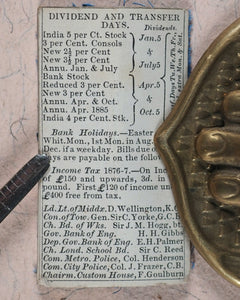 DIVIDEND AND TRANSFER
DAYS.
Dividends.
India 5 per Ct. Stock
3 per Cent. Consols
New 2½ per Cent
New 3½ per Cent
Annu. Jan. & July
Bank Stock
Reduced 3 per Cent.
New 3 per Cent
Annu. Apr. & Oct.
Annu. Apr. 1885
India 4 per Cent. Stk.
Jan. 5
&
July 5
Apr. 5
&
Oct. 5
Bank Holidays.—Easter
Whit. Mon., 1st Mon. in Aug.
Dec. if a weekday. Bills due
ys are payable on the follo
Income Tax 1876-7.—On inc
of £150 and upwards, 3d. in
pound. First £120 of income un
£400 free from tax.
Ld. Lt. of Middx. D. Wellington, K.G
Con. of Tow. Gen. Sir C. Yorke, G.C.B
Ch. Bd. of Wks. Sir J. M. Hogg, b
Gov. Bank of Eng. H. H. Gibbs
Dep. Gov. Bank of Eng. E. H. Palmer
Ch. Lond. School Bd. Sir C. Reed
Com. Metro. Police, Col. Henderson
Com. City Police, Col. J. Frazer, C.B.
Chairm. Custom House, F. Goulburn